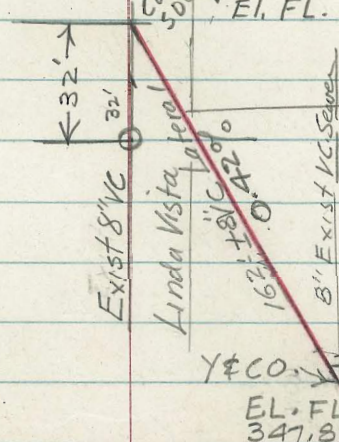 EL. FL.
32'
32'
Exist 8" VC
Linda Vista Lateral
162'± 8" VC 0.42%
8" Exist VC Sewer
Y & CO.
EL. FL
347.8